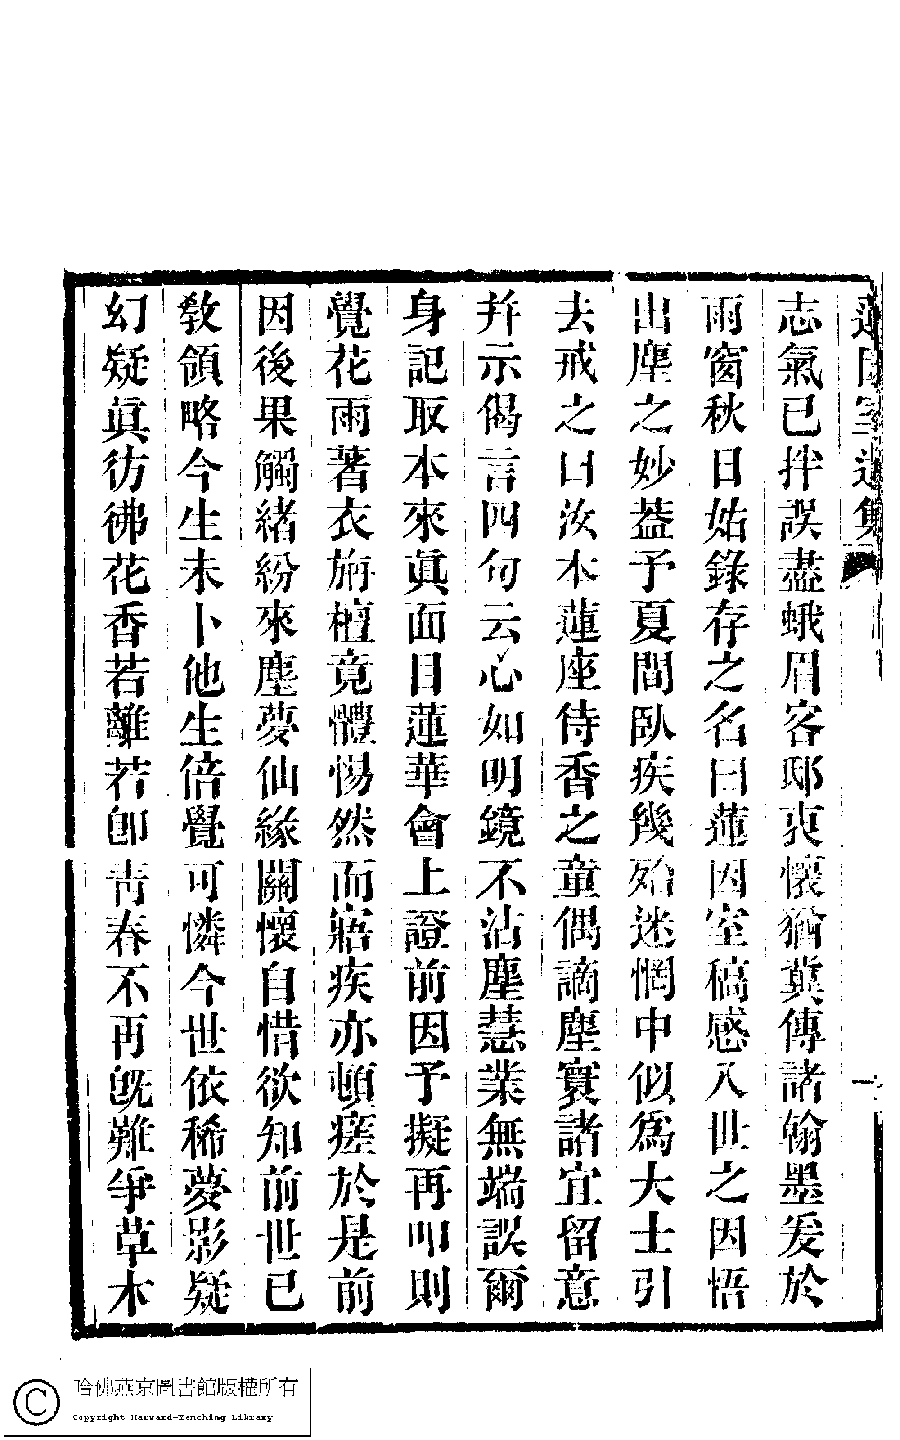 志氣已拌誤盡蛾眉客邸衷懷猶冀傳諸翰墨爰於
雨窗秋日始錄存之名曰蓮因室稿感入世之因悟
出塵之妙葢予夏間臥疾幾殆迷惘中似爲大士引
去戒之曰汝本蓮座侍香之童偶謫塵寰諸宜留意
幷示偈言四句云心如明鏡不沾塵慧業無端誤爾
身記取本來眞面目蓮華會上證前因予擬再叩則
覺花雨著衣旃檀竟體惕然而寤疾亦頓瘥於是前
因後果觸緒紛來塵夢仙緣關懷自惜欲知前世已
敎領略今生未卜他生倍覺可憐今世依稀夢影疑
幻疑眞彷彿花香若離若卽靑春不再旣難爭草木
一
哈佛燕京圖書館版權所有
Copyright Harvard-Yenching Library